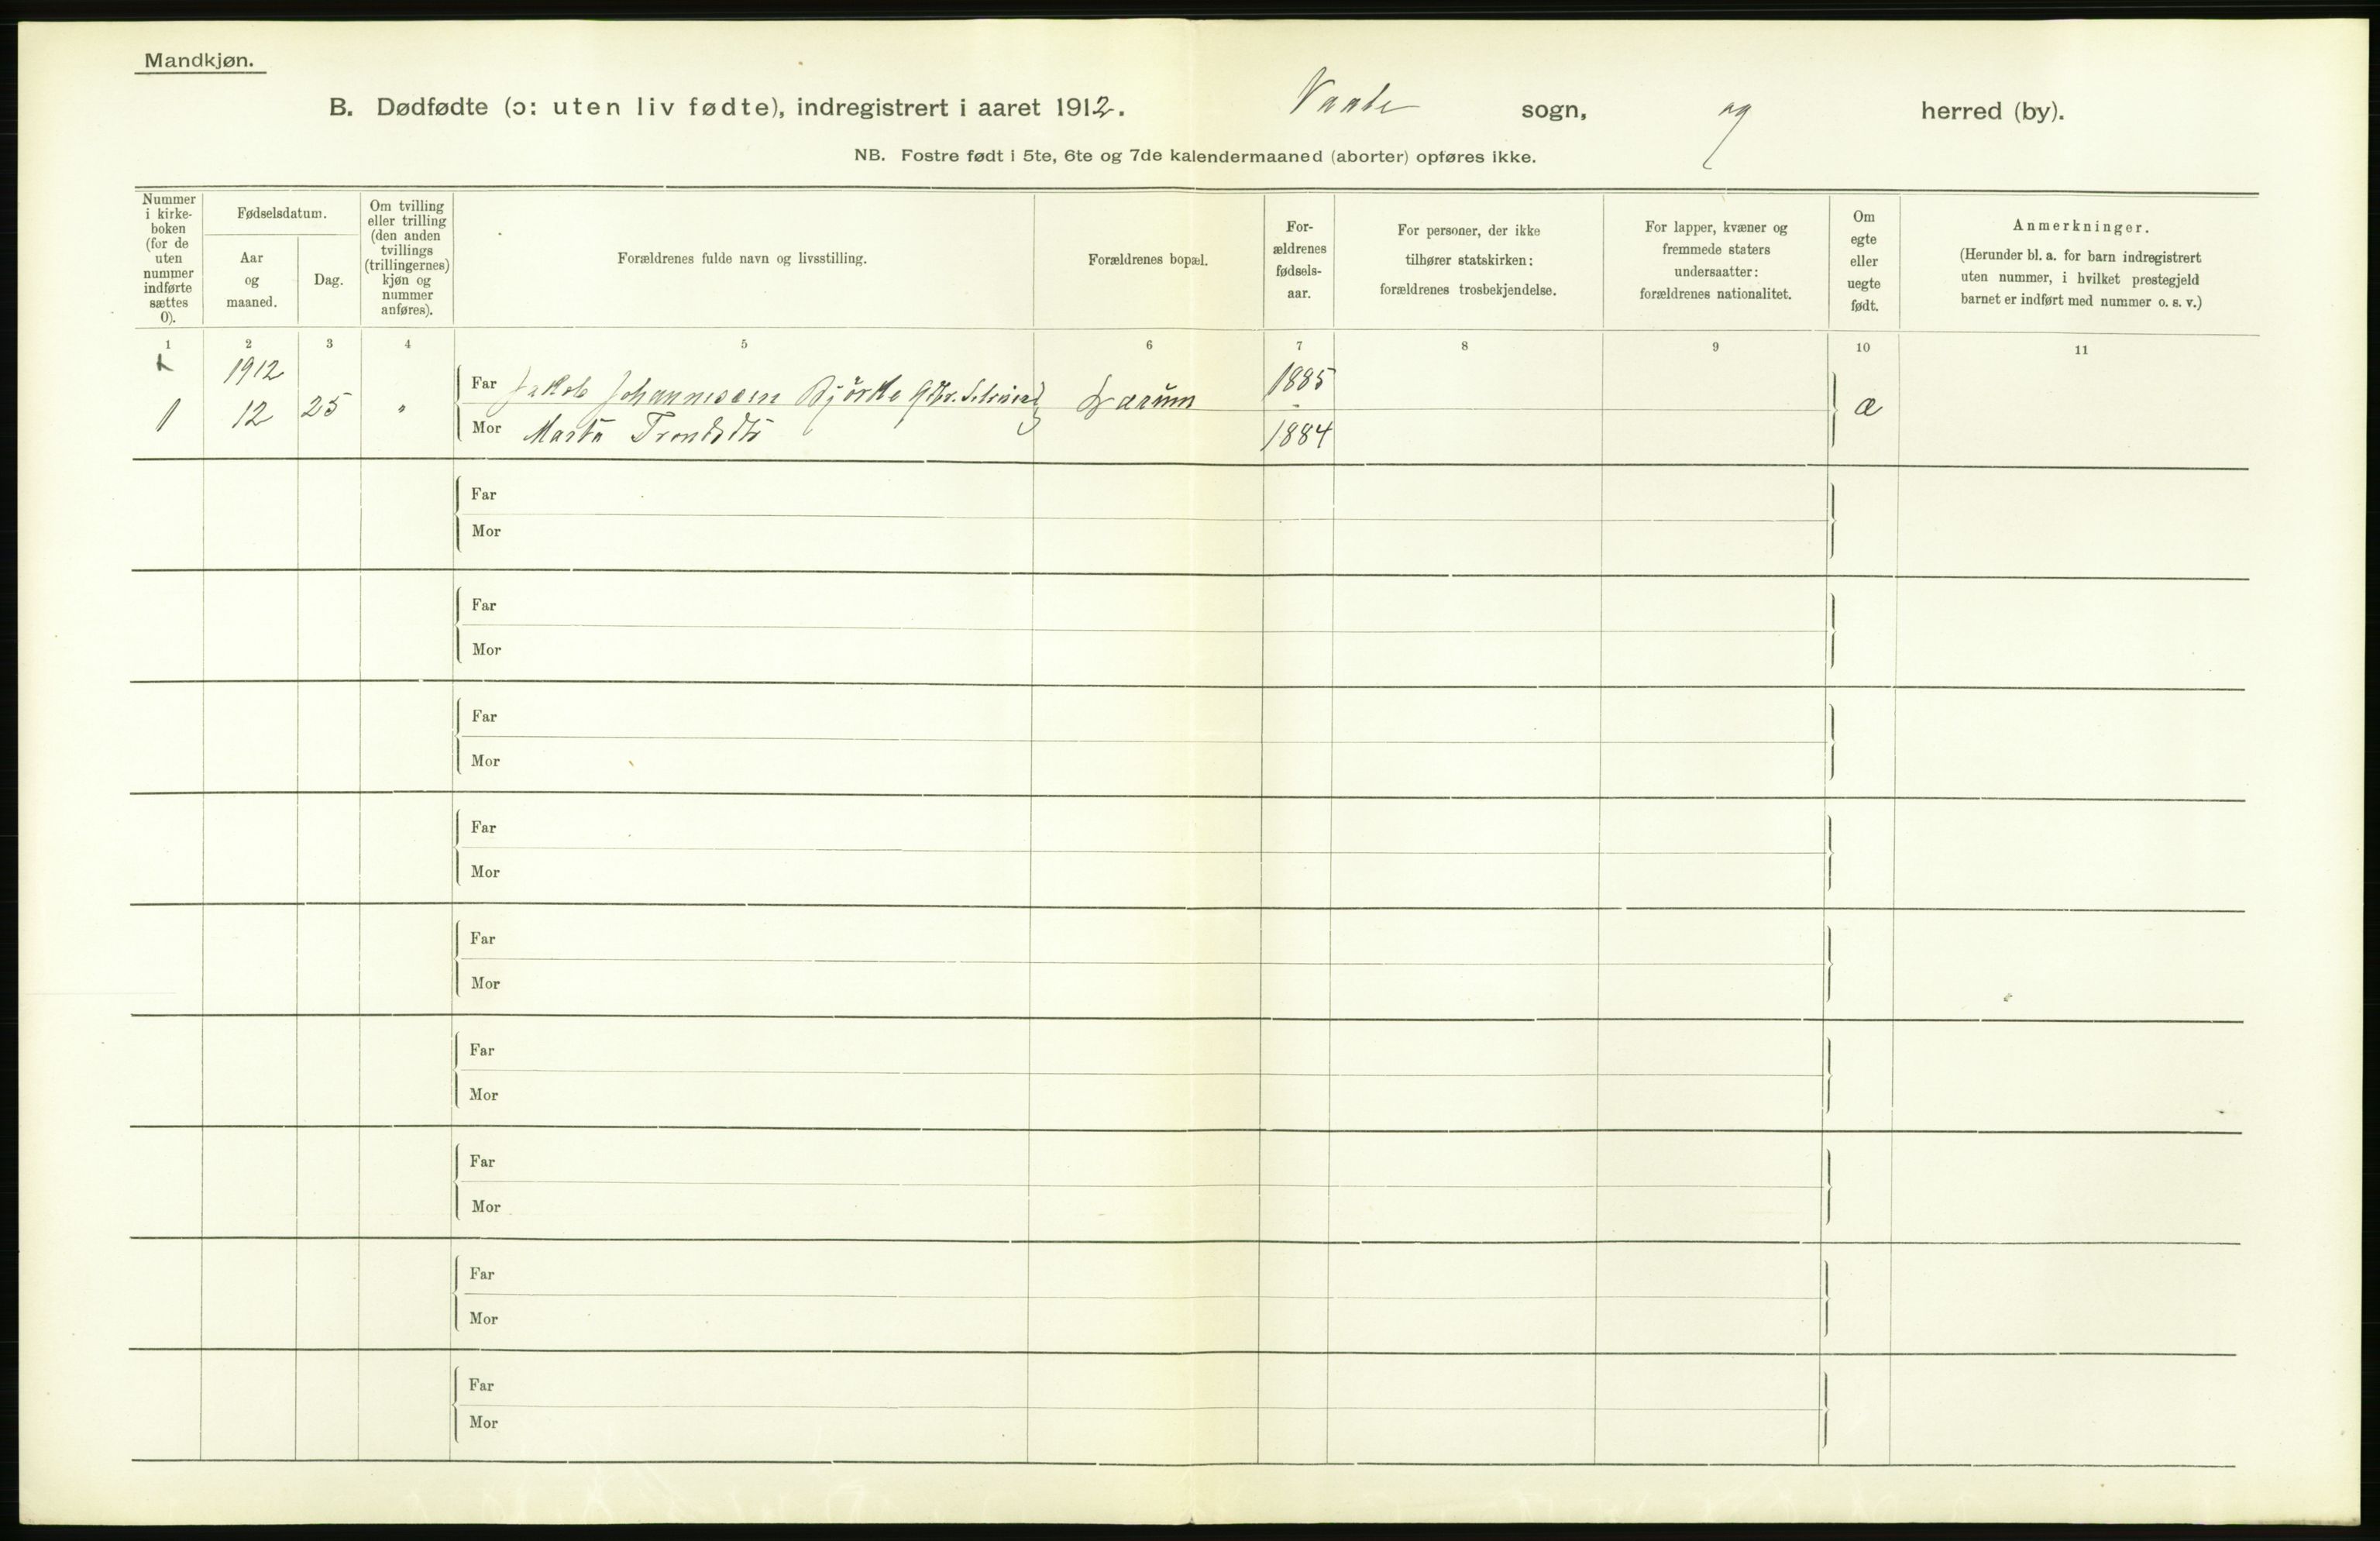 Mandkjøn.
B. Dødfødte (ɔ: uten liv fødte), indregistrert i aaret 1912. sogn, og herred (by).
NB. Fostre født i 5te, 6te og 7de kalendermaaned (aborter) opføres ikke.
Nummer
i kirke-
boken
(for de
uten
nummer
indførte
sættes
0).
Fødselsdatum.
Aar
og
maaned.
Dag.
Om tvilling
eller trilling
(den anden
tvillings
(trillingernes)
kjøn og
nummer
anføres).
Forældrenes fulde navn og livsstilling.
Forældrenes bopæl.
For-
ældrenes
fødsels-
aar.
For personer, der ikke
tilhører statskirken:
forældrenes trosbekjendelse.
For lapper, kvæner og
fremmede staters
undersaatter:
forældrenes nationalitet.
Om
egte
eller
uegte
født.
Anmerkninger.
(Herunder bl. a. for barn indregistrert
uten nummer, i hvilket prestegjeld
barnet er indført med nummer o. s. v.)
1 2 3 4 5 6 7 8 9 10 11
1912
1 12 25 "
Far Jakob Johannessen Björke 1885
Mor Marta 1884
Far
Mor
Far
Mor
Far
Mor
Far
Mor
Far
Mor
Far
Mor
Far
Mor
Far
Mor
Far
Mor